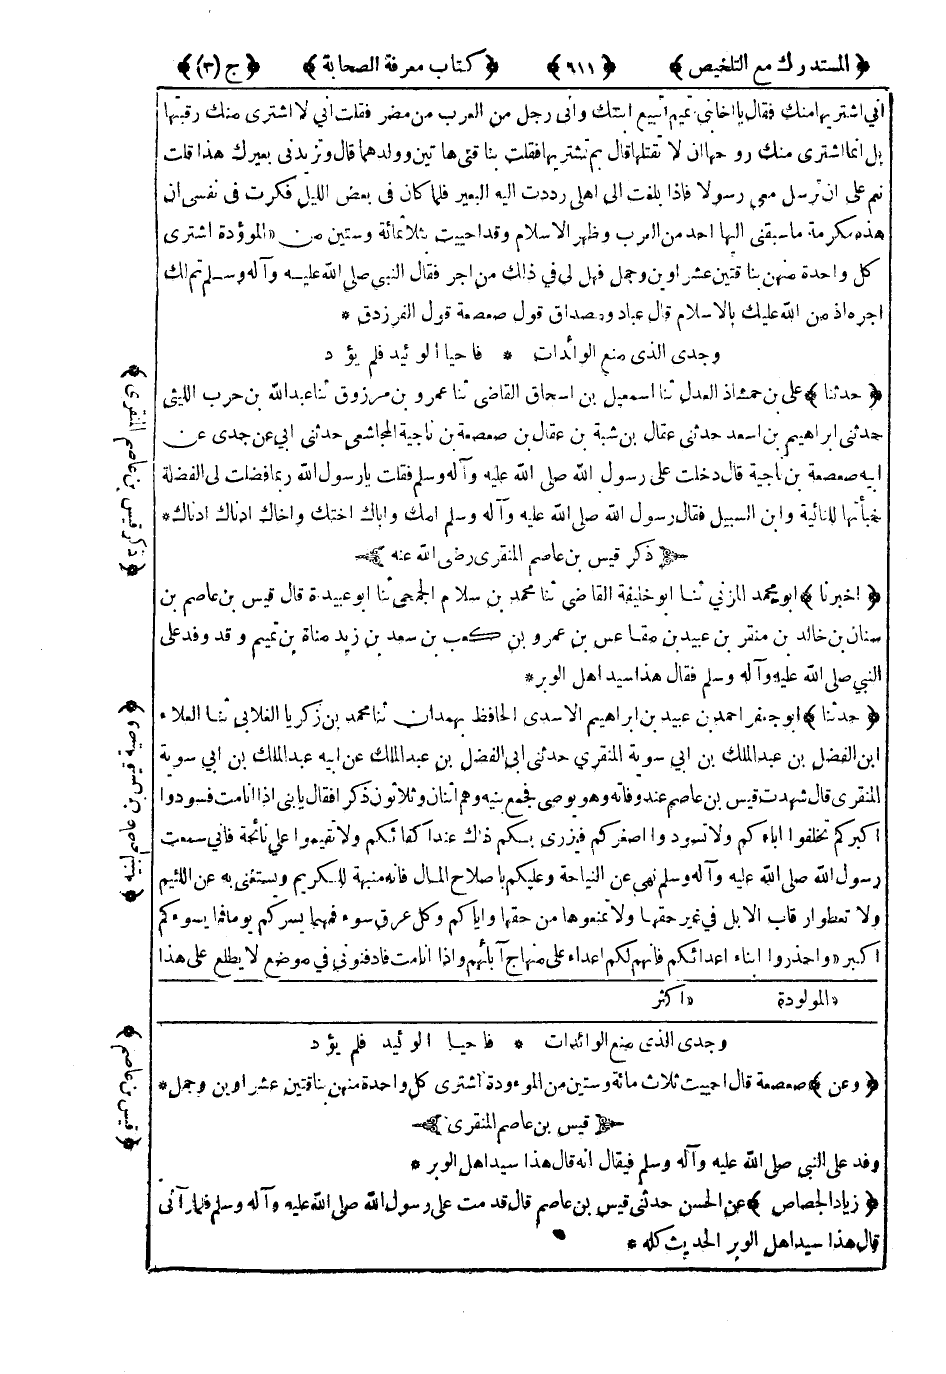 ﴿ المستدرك مع التلخيص ﴾ ﴿ ٦١١ ﴾ ﴿ كتاب معرفة الصحابة ﴾ ﴿ ج (٣) ﴾
اني اشتريها منك فقال يا اخا بني تميم أتبيع ابنتك واني رجل من العرب من مضر فقلت اني لا اشترى منك رقبتها
بل انما اشترى منك روحها ان لا تقتلها قال بم تشتريها فقلت بناقتي هاتين وولدهما قال وتزيدنى بعيرك هذا قلت
نعم على ان ترسل معي رسولا فاذا بلغت الى اهلى رددت اليه البعير فلما كان فى بعض الليل فكرت فى نفسى ان
هذه مكرمة ما سبقنى اليها احد من العرب وظهر الاسلام وقد احييت بثلاثمائة وستين من «الموؤدة اشترى
كل واحدة منهن بناقتين عشراوين وجمل فهل لى في ذالك من اجر فقال النبي صلى الله عليه وآله وسلم تم لك
اجره اذ من الله عليك بالاسلام قال عباد ومصداق قول صعصعة قول الفرزدق *
وجدى الذى منع الوائدات * فاحيا الوئيد فلم يؤد
﴿ حدثنا ﴾ على بن حمشاذ العدل ثنا اسمعيل بن اسحاق القاضى ثنا عمرو بن مرزوق ثنا عبدالله بن حرب الليثى
حدثنى ابراهيم بن اسعد حدثنى عقال بن شبة بن عقال بن صعصعة بن ناجية المجاشعى حدثنى ابي عن جدى عن
ابيه صعصعة بن ناجية قال دخلت على رسول الله صلى الله عليه وآله وسلم فقلت يارسول الله ربما فضلت لى الفضلة
خبأتها للنائبة وابن السبيل فقال رسول الله صلى الله عليه وآله وسلم امك واباك اختك واخاك ادناك ادناك *
ذكر قيس بن عاصم المنقرى رضى الله عنه
﴿ اخبرنا ﴾ ابو محمد المزني ثنا ابو خليفة القاضى ثنا محمد بن سلام الجمحى ثنا ابو عبيدة قال قيس بن عاصم بن
سنان بن خالد بن منقر بن عبيد بن مقاعس بن عمرو بن كعب بن سعد بن زيد مناة بن تميم وقد وفد على
النبي صلى الله عليه وآله وسلم فقال هذا سيد اهل الوبر *
﴿ حدثنا ﴾ ابو جعفر احمد بن عبيد بن ابراهيم الاسدى الحافظ بهمدان ثنا محمد بن زكريا الغلابي ثنا العلاء
ابن الفضل بن عبدالملك بن ابي سوية المنقري حدثنى ابي الفضل بن عبدالملك عن ابيه عبدالملك بن ابي سوية
المنقرى قال شهدت قيس بن عاصم عند وفاته وهو يوصى فجمع بنيه وهم اثنان وثلاثون ذكرا فقال يابنى اذا انامت فسودوا
اكبركم تخلفوا اباءكم ولا تسودوا اصغركم فيزرى بكم ذاك عند اكفائكم ولا تقيموا على نائحة فاني سمعت
رسول الله صلى الله عليه وآله وسلم نهى عن النياحة وعليكم باصلاح المال فانه منبهة للكريم ويستغنى به عن اللئيم
ولا تعطوا رقاب الابل في غير حقها ولا تمنعوها من حقها واياكم وكل عرق سوء فمهما يسركم يوما فما يسوءكم
اكبر «واحذروا ابناء اعدائكم فانهم لكم اعداء على منهاج آبائهم واذا انامت فادفنونى في موضع لا يطلع على هذا
«المولودة «اكثر
وجدى الذى منع الوائدات * فاحيا الوئيد فلم يؤد
﴿ وعن ﴾ صعصعة قال احييت ثلاث مائة وستين من الموءودة اشترى كل واحدة منهن بناقتين عشراوين وجمل *
قيس بن عاصم المنقرى
وفد على النبي صلى الله عليه وآله وسلم فيقال انه قال هذا سيد اهل الوبر *
﴿ زياد الجصاص ﴾ عن الحسن حدثنى قيس بن عاصم قال قدمت على رسول الله صلى الله عليه وآله وسلم فلما رآنى
قال هذا سيد اهل الوبر الحديث كله *
﴿ ذكر قيس بن عاصم المنقرى ﴾
﴿ قيس بن عاصم ﴾